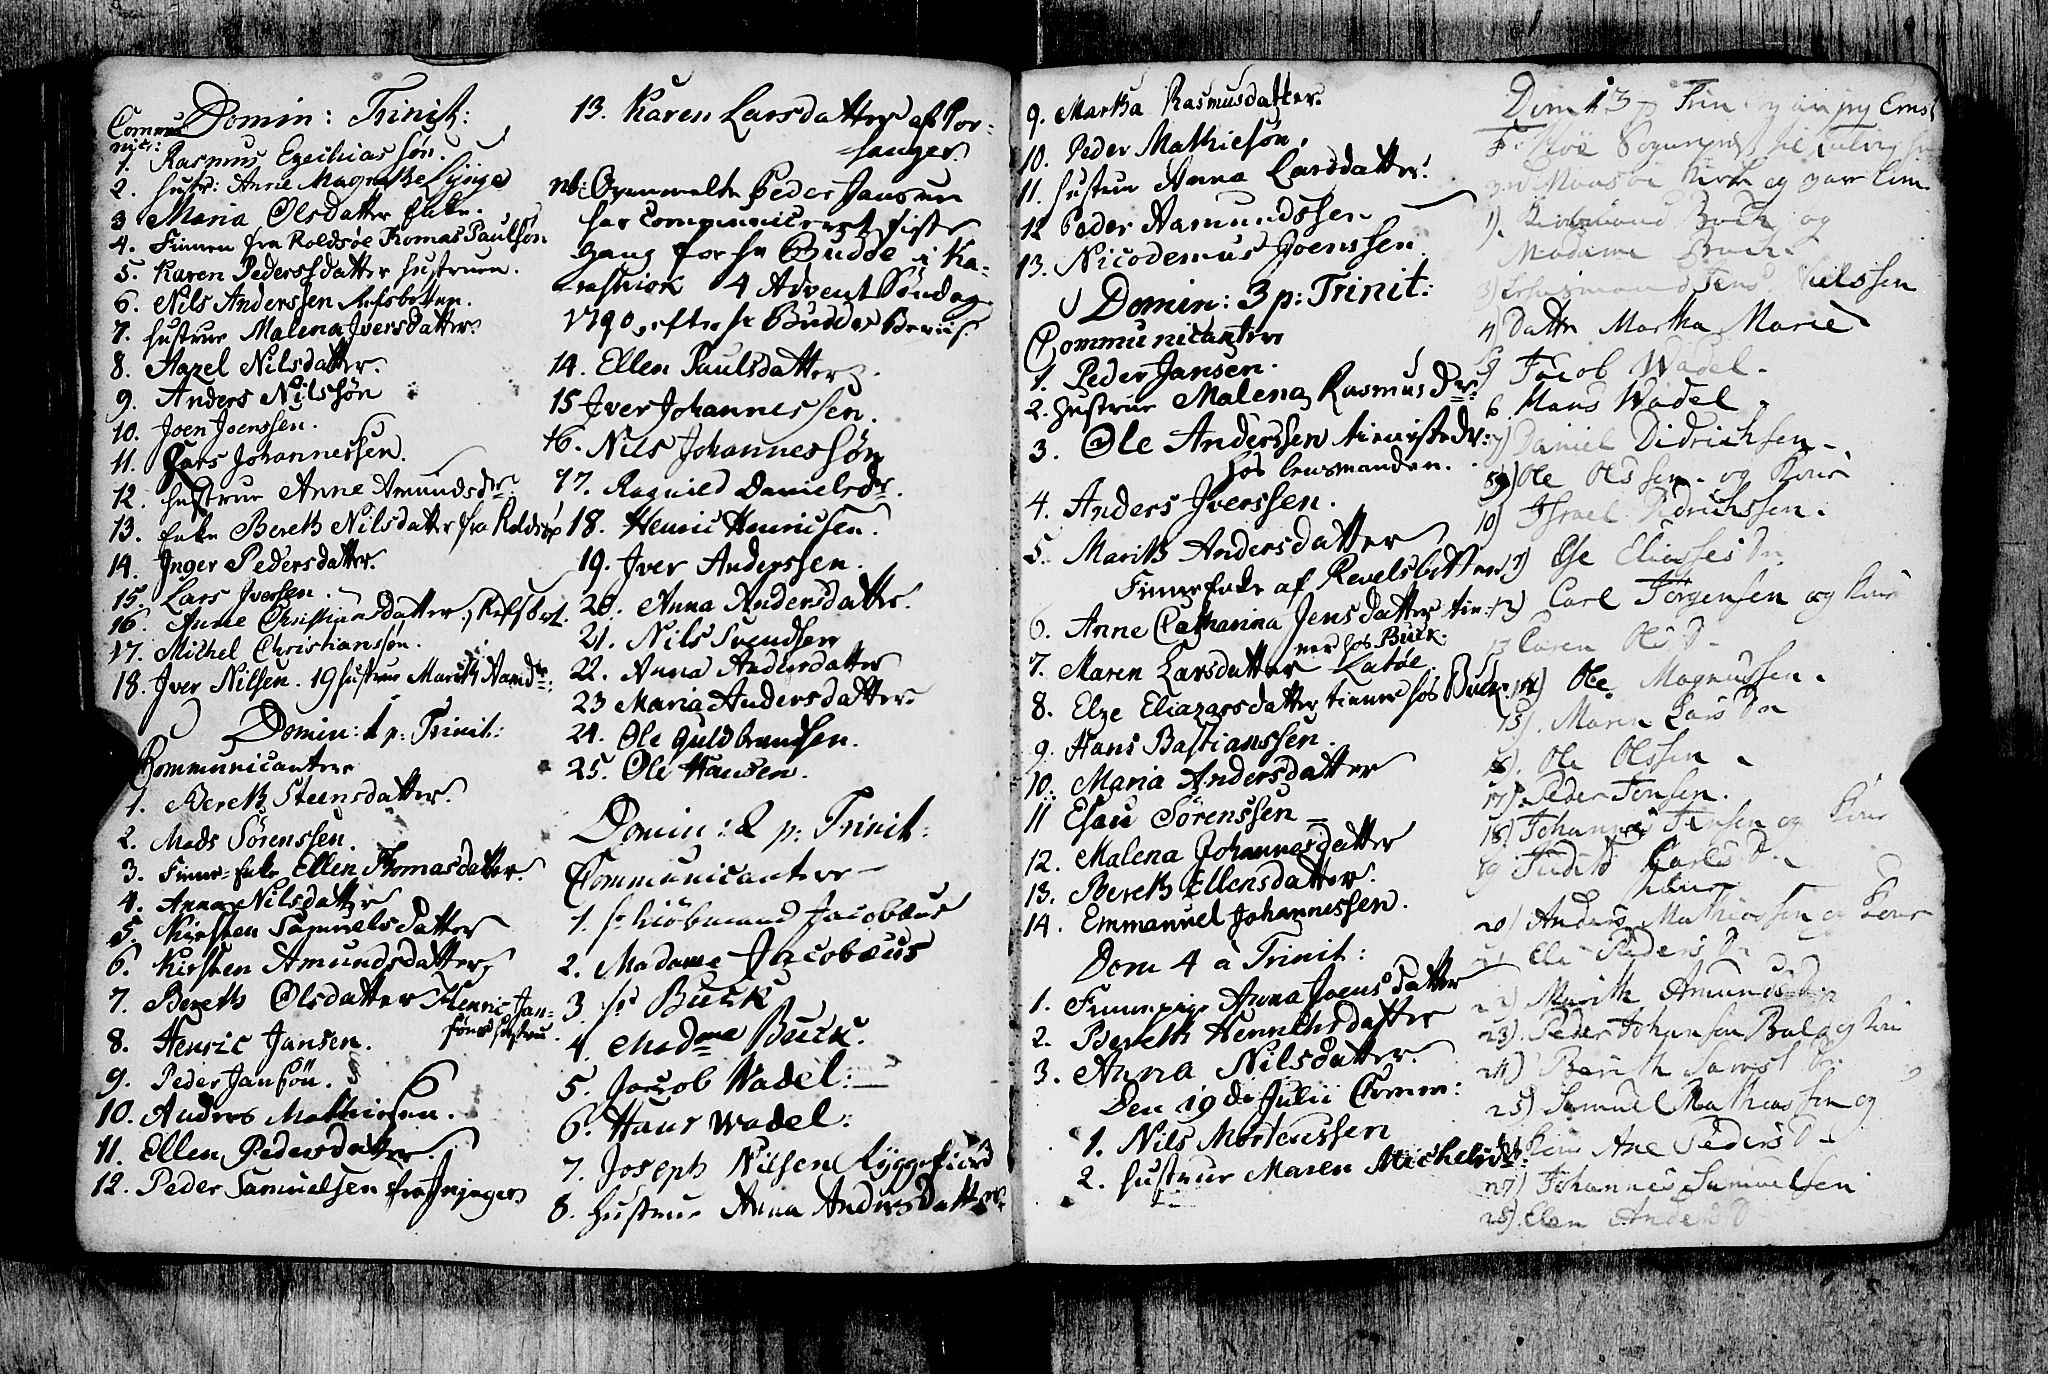 Domin: Trinit:
Commu
nic:
1. Rasmus Ezechiassøn.
2. hustr: Anne Magrethe Lynge
3 Maria Olsdatter Enke.
4. Finnen fra Roldsøe Thomas Paulsøn
5. Karen Pedersdatter hustruen.
6. Nils Anderssen Refsbotten.
7. hustrue Malena Iversdatter.
8. Hazel Nilsdatter.
9. Anders Nilssøn
10. Joen Joenssen.
11. Lars Johannessen.
12. hustrue Anne Amundsdr.
13. Enke Bereth Nilsdatter fra Roldsøe
14. Inger Pedersdatter.
15. Lars Iversen.
16. Anne Christiansdatter, Refsbot.
17. Michel Christianssøn.
18. Iver Nilsen. 19 hustrue Marith Aamdr:
Domin: 1 p: Trinit:
Communicantere
1. Bereth Steensdatter.
2. Mads Sørenssen.
3. Finne-Enke Ellen Thomasdatter.
4. Anna Nilsdatter
5. Kirsten Samuelsdatter
6. Kirsten Amundsdatter
7. Bereth Olsdatter Henric Jan-
søns hustrue.
8. Henric Jansen.
9. Peder Jansøn.
10. Anders Mathiesen.
11. Ellen Pedersdatter.
12. Peder Samuelsen fra
13. Karen Larsdatter af Por-
sanger.
nb: Ovenmelte Peder Jansen
har communiceret siste
gang for hr Budde i Ka-
4 Advent Søndag
1790, efter hr Buddes Beviis.
14. Ellen Paulsdatter.
15 Iver Johannessen.
16. Nils Johannessøn
17. Ragnild Danielsdr.
18. Henric Henricsen.
19. Iver Anderssen.
20. Anna Andersdatter.
21. Nils Svendsen
22. Anna Andersdatter
23 Maria Andersdatter.
24. Ole Guldbrandsen.
25. Ole Hansen.
Domin: 2 p: Trinit:
Communicantere
1. hr Kiøbmand Jacobæus
2. Madame Jacobæus
3 hr Buck
4. Madme Buck.
5. Jacob Wadel:
6. Hans Wadel:
7. Joseph Nilsen Ryggefiord
8. hustrue Anna Andersdatter
9. Martha Rasmusdatter.
10. Peder Mathiesøn.
11. hustrue Anna Larsdatter.
12 Peder Aamundssen
13. Nicodemus Joenssen
Domin: 3 p: Trinit:
Communicantere
1. Peder Jansen.
2. hustrue Malena Rasmusdr.
3. Ole Anderssen
hos lensmanden.
4. Anders Iverssen.
5. Marith Andersdatter
Finneenke af Revelsbotten
6. Anne Catharina Jensdatter tie-
ner hos Buck.
7. Maren Larsdatter Latøe
8. Elze Eliazarsdatter tiener hos Buck.
9. Hans Bastianssen.
10. Maria Andersdatter
11 Esau Sørenssen
12. Malena Johannesdatter
13. Bereth Ellensdatter.
14. Emmanuel Johannessen.
Dom 4 a Trinit:
1. Finnepige Anna Joensdatter
2. Bereth Henrichsdatter
3. Anna Nilsdatter.
Den 19de Julii Comm:
1. Nils Mortenssen
2. hustrue Maren Michelsdr:
Dom 13 p Trin
Maasøe Kirke og
1). Kiøbmand Buck og
Madame Buck.
3) Jens Nielssen
4) Datter Martha Marie
5) Jacob Wadel.
6 Hans Wadel.
7) Daniel Didrichsen
8) Ole Olssen og Kone
10) Israel Didrichssen.
11) Ose Elias D
12) Carl Jørgensen og Kone
13 Karen Ols D
14) Ole Magnussen.
15). Maren Lars D
16). Ole Olssen
17) Peder Jensen.
18) Johannes Jensen og Kone
19 Judith Carls D
20) Anders Mathiassen og Kone
21 Peders D
22) Marith Amunds D
23). Peder Johansen
24) Berith
25) Samuel Mathiassen og
Kone Ane Peders D
27) Johannes Samuelsen
28). Elen Anders D